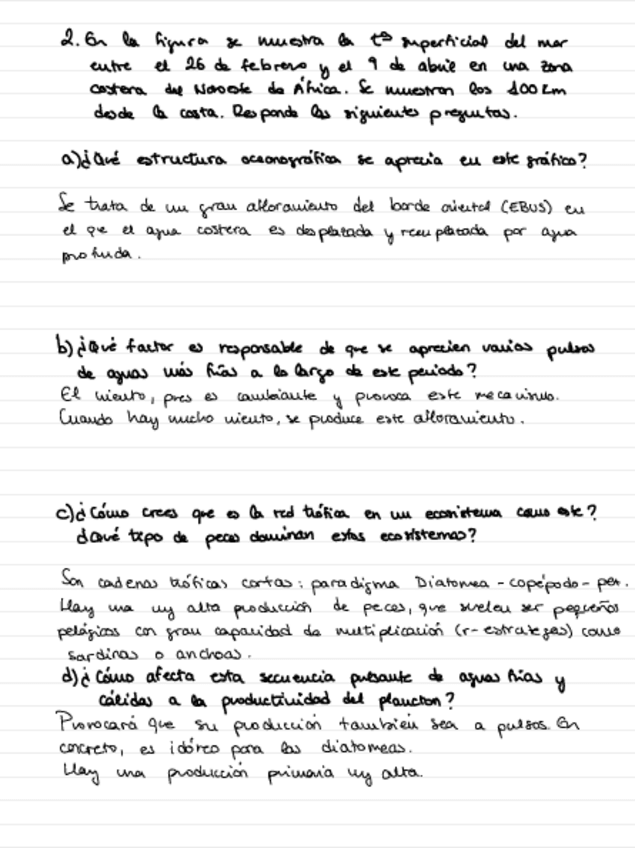 2. En la figura se muestra la tª superficial del mar
entre el 26 de febrero y el 9 de abril en una zona
costera del Noroeste de África. Se muestran los 100 km
desde la costa. Responde las siguientes preguntas.
a) ¿Qué estructura oceanográfica se aprecia en este gráfico?
Se trata de un gran afloramiento del borde oriental (EBUS) en
el que el agua costera es desplazada y reemplazada por agua
profunda.
b) ¿Qué factor es responsable de que se aprecien varios pulsos
de aguas más frías a lo largo de este periodo?
El viento, pues es cambiante y provoca este mecanismo.
Cuando hay mucho viento, se produce este afloramiento.
c) ¿Cómo crees que es la red trófica en un ecosistema como este?
¿Qué tipo de peces dominan estos ecosistemas?
Son cadenas tróficas cortas: paradigma Diatomea - copépodo - pez.
Hay una uy alta producción de peces, que suelen ser pequeños
pelágicos con gran capacidad de multiplicación (r-estrategas) como
sardinas o anchoas.
d) ¿Cómo afecta esta secuencia pulsante de aguas frías y
cálidas a la productividad del plancton?
Provocará que su producción también sea a pulsos. En
concreto, es idóneo para las diatomeas.
Hay una producción primaria uy alta.